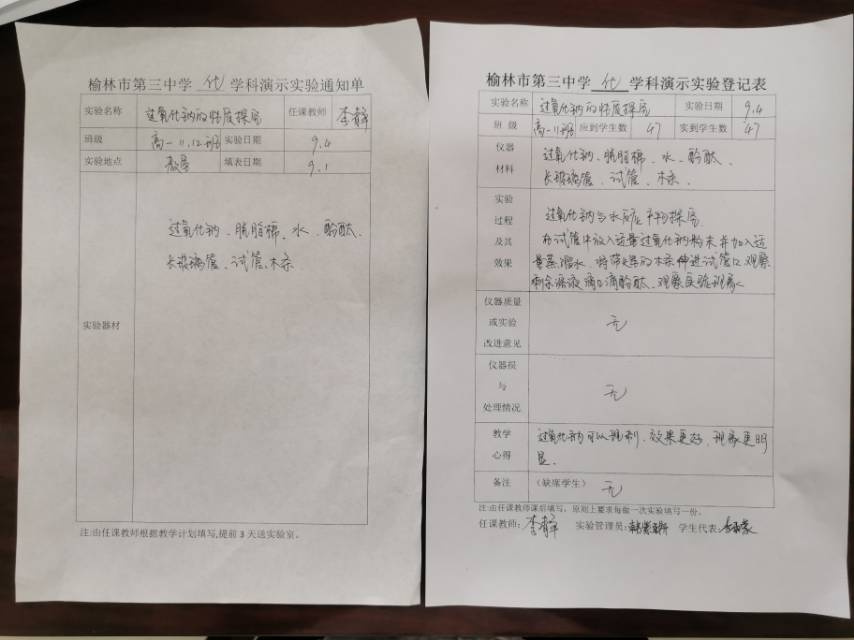 榆林市第三中学 化 学科演示实验通知单
实验名称 过氧化钠的性质探究 任课教师 李静
班级 高一 11.12班 实验日期 9.4
实验地点 教室 填表日期 9.1
实验器材
过氧化钠、脱脂棉、水、酚酞、
长玻璃管、试管、木条
注:由任课教师根据教学计划填写,提前 3 天送实验室。
榆林市第三中学 化 学科演示实验登记表
实验名称 过氧化钠的性质探究 实验日期 9.4
班 级 高一 11班 应到学生数 47 实到学生数 47
仪器
材料
过氧化钠、脱脂棉、水、酚酞、
长玻璃管、试管、木条.
实验
过程
及其
效果
过氧化钠与水反应
在试管中放入适量过氧化钠粉末并加入适
量蒸馏水,将带火星的木条伸进试管口,观察.
剩余溶液滴 滴酚酞.观察实验现象
仪器质量
或实验
改进意见
无
仪器损
与
处理情况
无
教学
心得
过氧化钠可以现制,效果更好,现象更明
显.
备注 (缺席学生) 无
注:由任课教师课后填写,原则上要求每做一次实验填写一份。
任课教师: 李静 实验管理员: 学生代表: